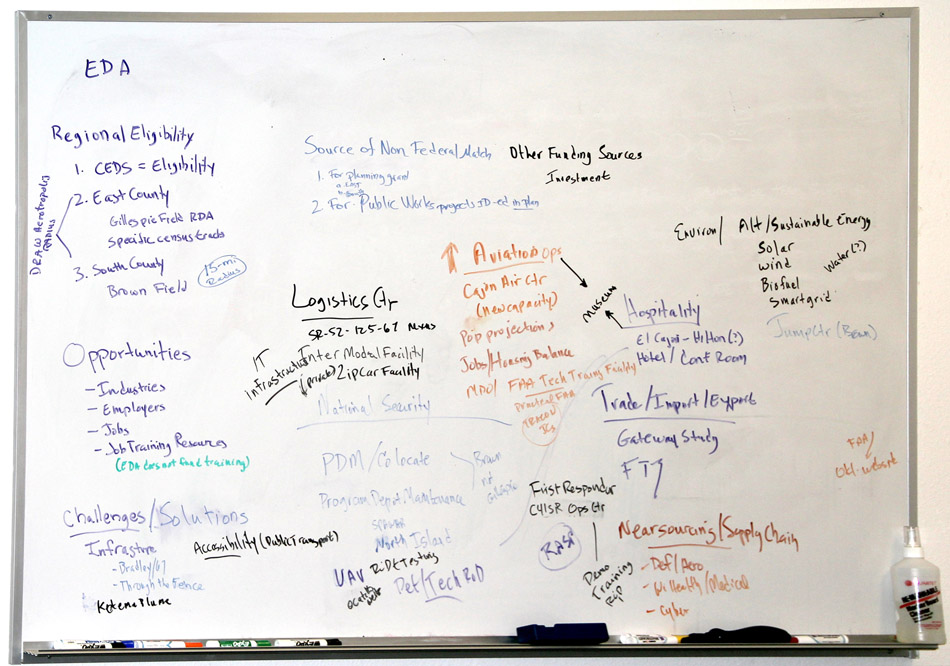 EDA
Regional Eligibility
1. CEDS = Eligibility
2. East County
Gillespie Field RDA
Specific census tracts
3. South County
Brown Field
15-mi Radius
DRAW Aerotropolis RADIUS
Opportunities
- Industries
- Employers
- Jobs
- Job Training Resources
(EDA does not fund training)
Challenges/Solutions
Infrastrure
- Bradley/67
- Through the Fence
Ketema Plume
Accessibility (Public Transport)
Source of Non Federal Match
1. For planning grant
2. For Public Works projects ID-ed in plan
Other Funding Sources
Investment
Logistics Ctr
SR-52-125-67 Nexus
Inter Modal Facility
ZipCar Facility
IT Infrastructure
(private)
National Security
PDM/Colocate
Program Depot Maintenance
North Island
Brown
Gillespie
UAV
RiDE Testing
Def/Tech R&D
Aviation Ops
Cajon Air Ctr
(new capacity)
Pop projections
Jobs/Housing Balance
MRO/ FAA Tech Traing Facility
Practical FAA
TRACON
Museum
Hospitality
El Cajon - Hilton (?)
Hotel / Conf Room
Trade/Import/Export
Gateway Study
FTZ
First Responder
C4ISR Ops Ctr
RASP
Demo
Training
Nearsourcing/Supply Chain
- Def/Aero
- Wi Health/Medical
- Cyber
Environ/ Alt/Sustainable Energy
Solar
Wind
Biofuel
Smartgrid
Water (?)
JumpCtr (Bean)
FAA/